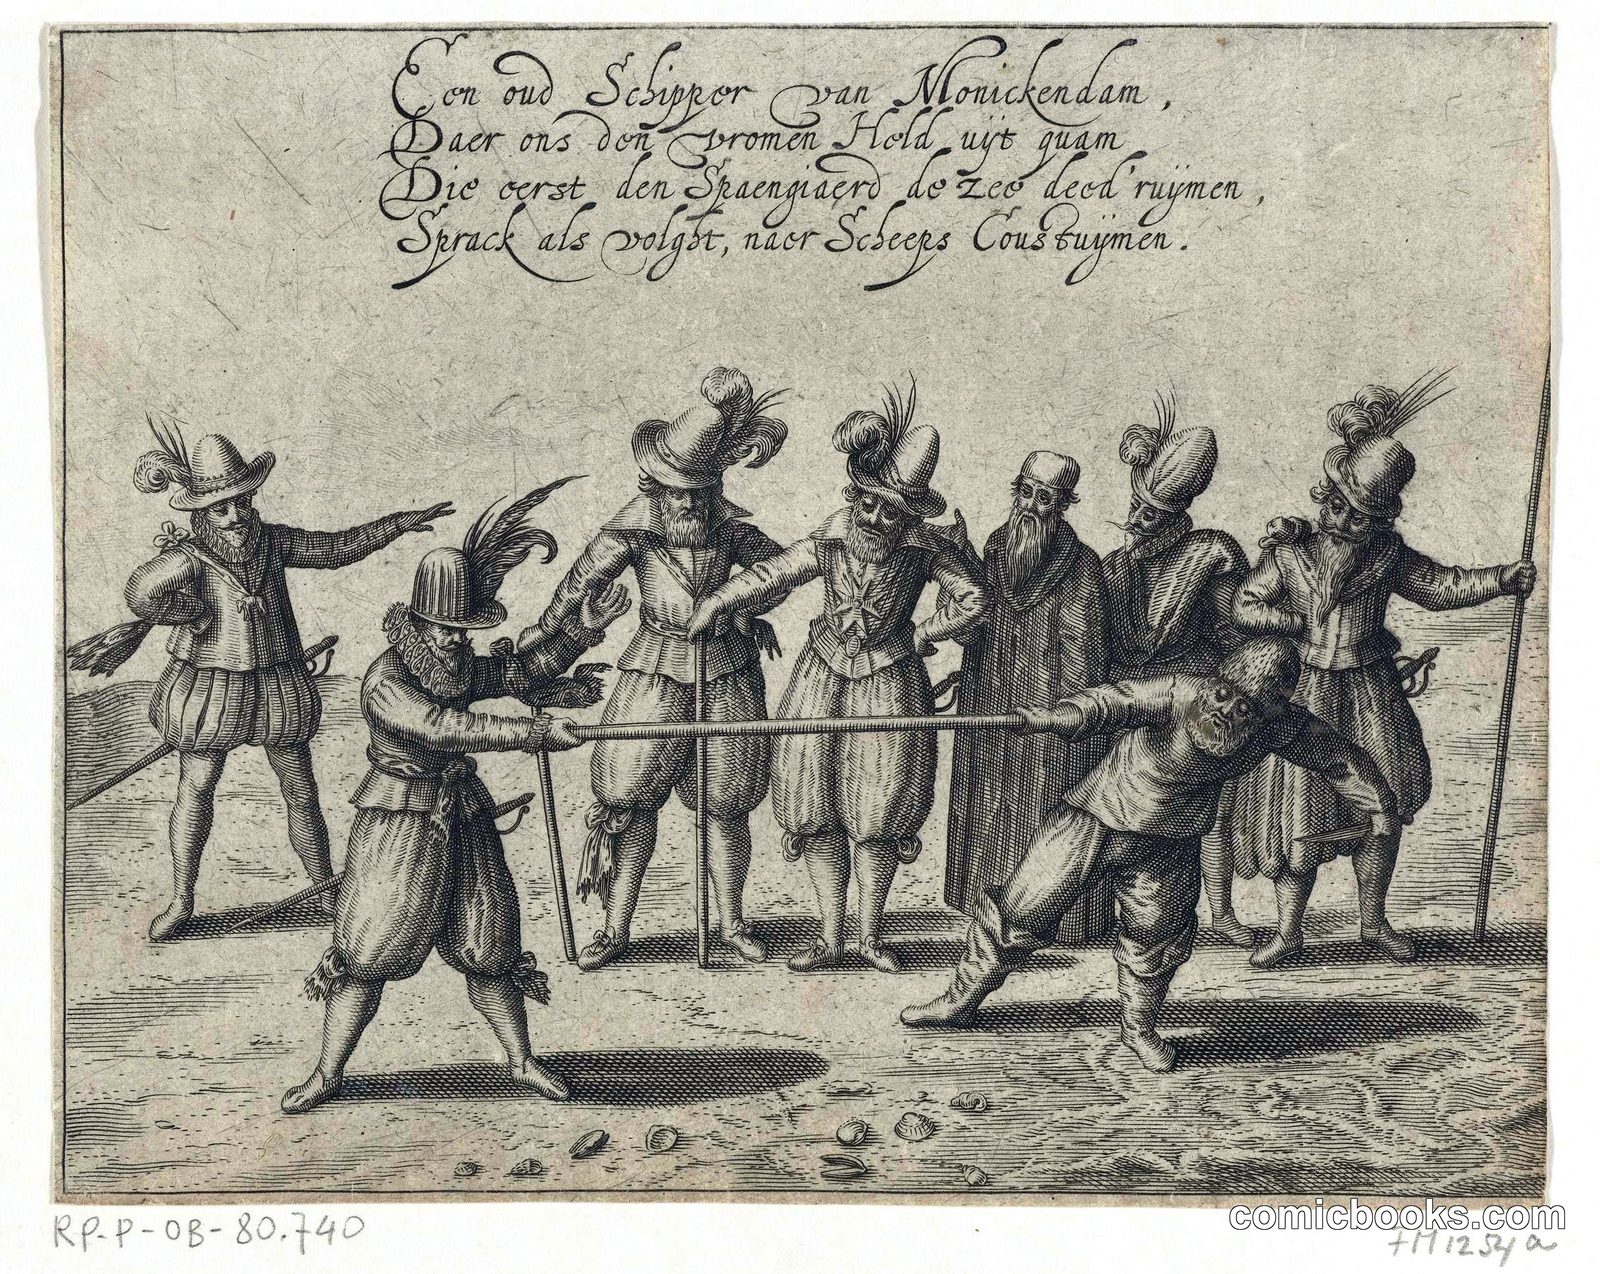 Een oud Schipper van Monickendam,
Daer ons den vromen Held uijt quam
Die eerst den Spaengiaerd de zee deed' ruijmen,
Sprack als volght, naer Scheeps Coustuijmen.
RP-P-OB-80.740
comicbooks.com
FM 1254 a